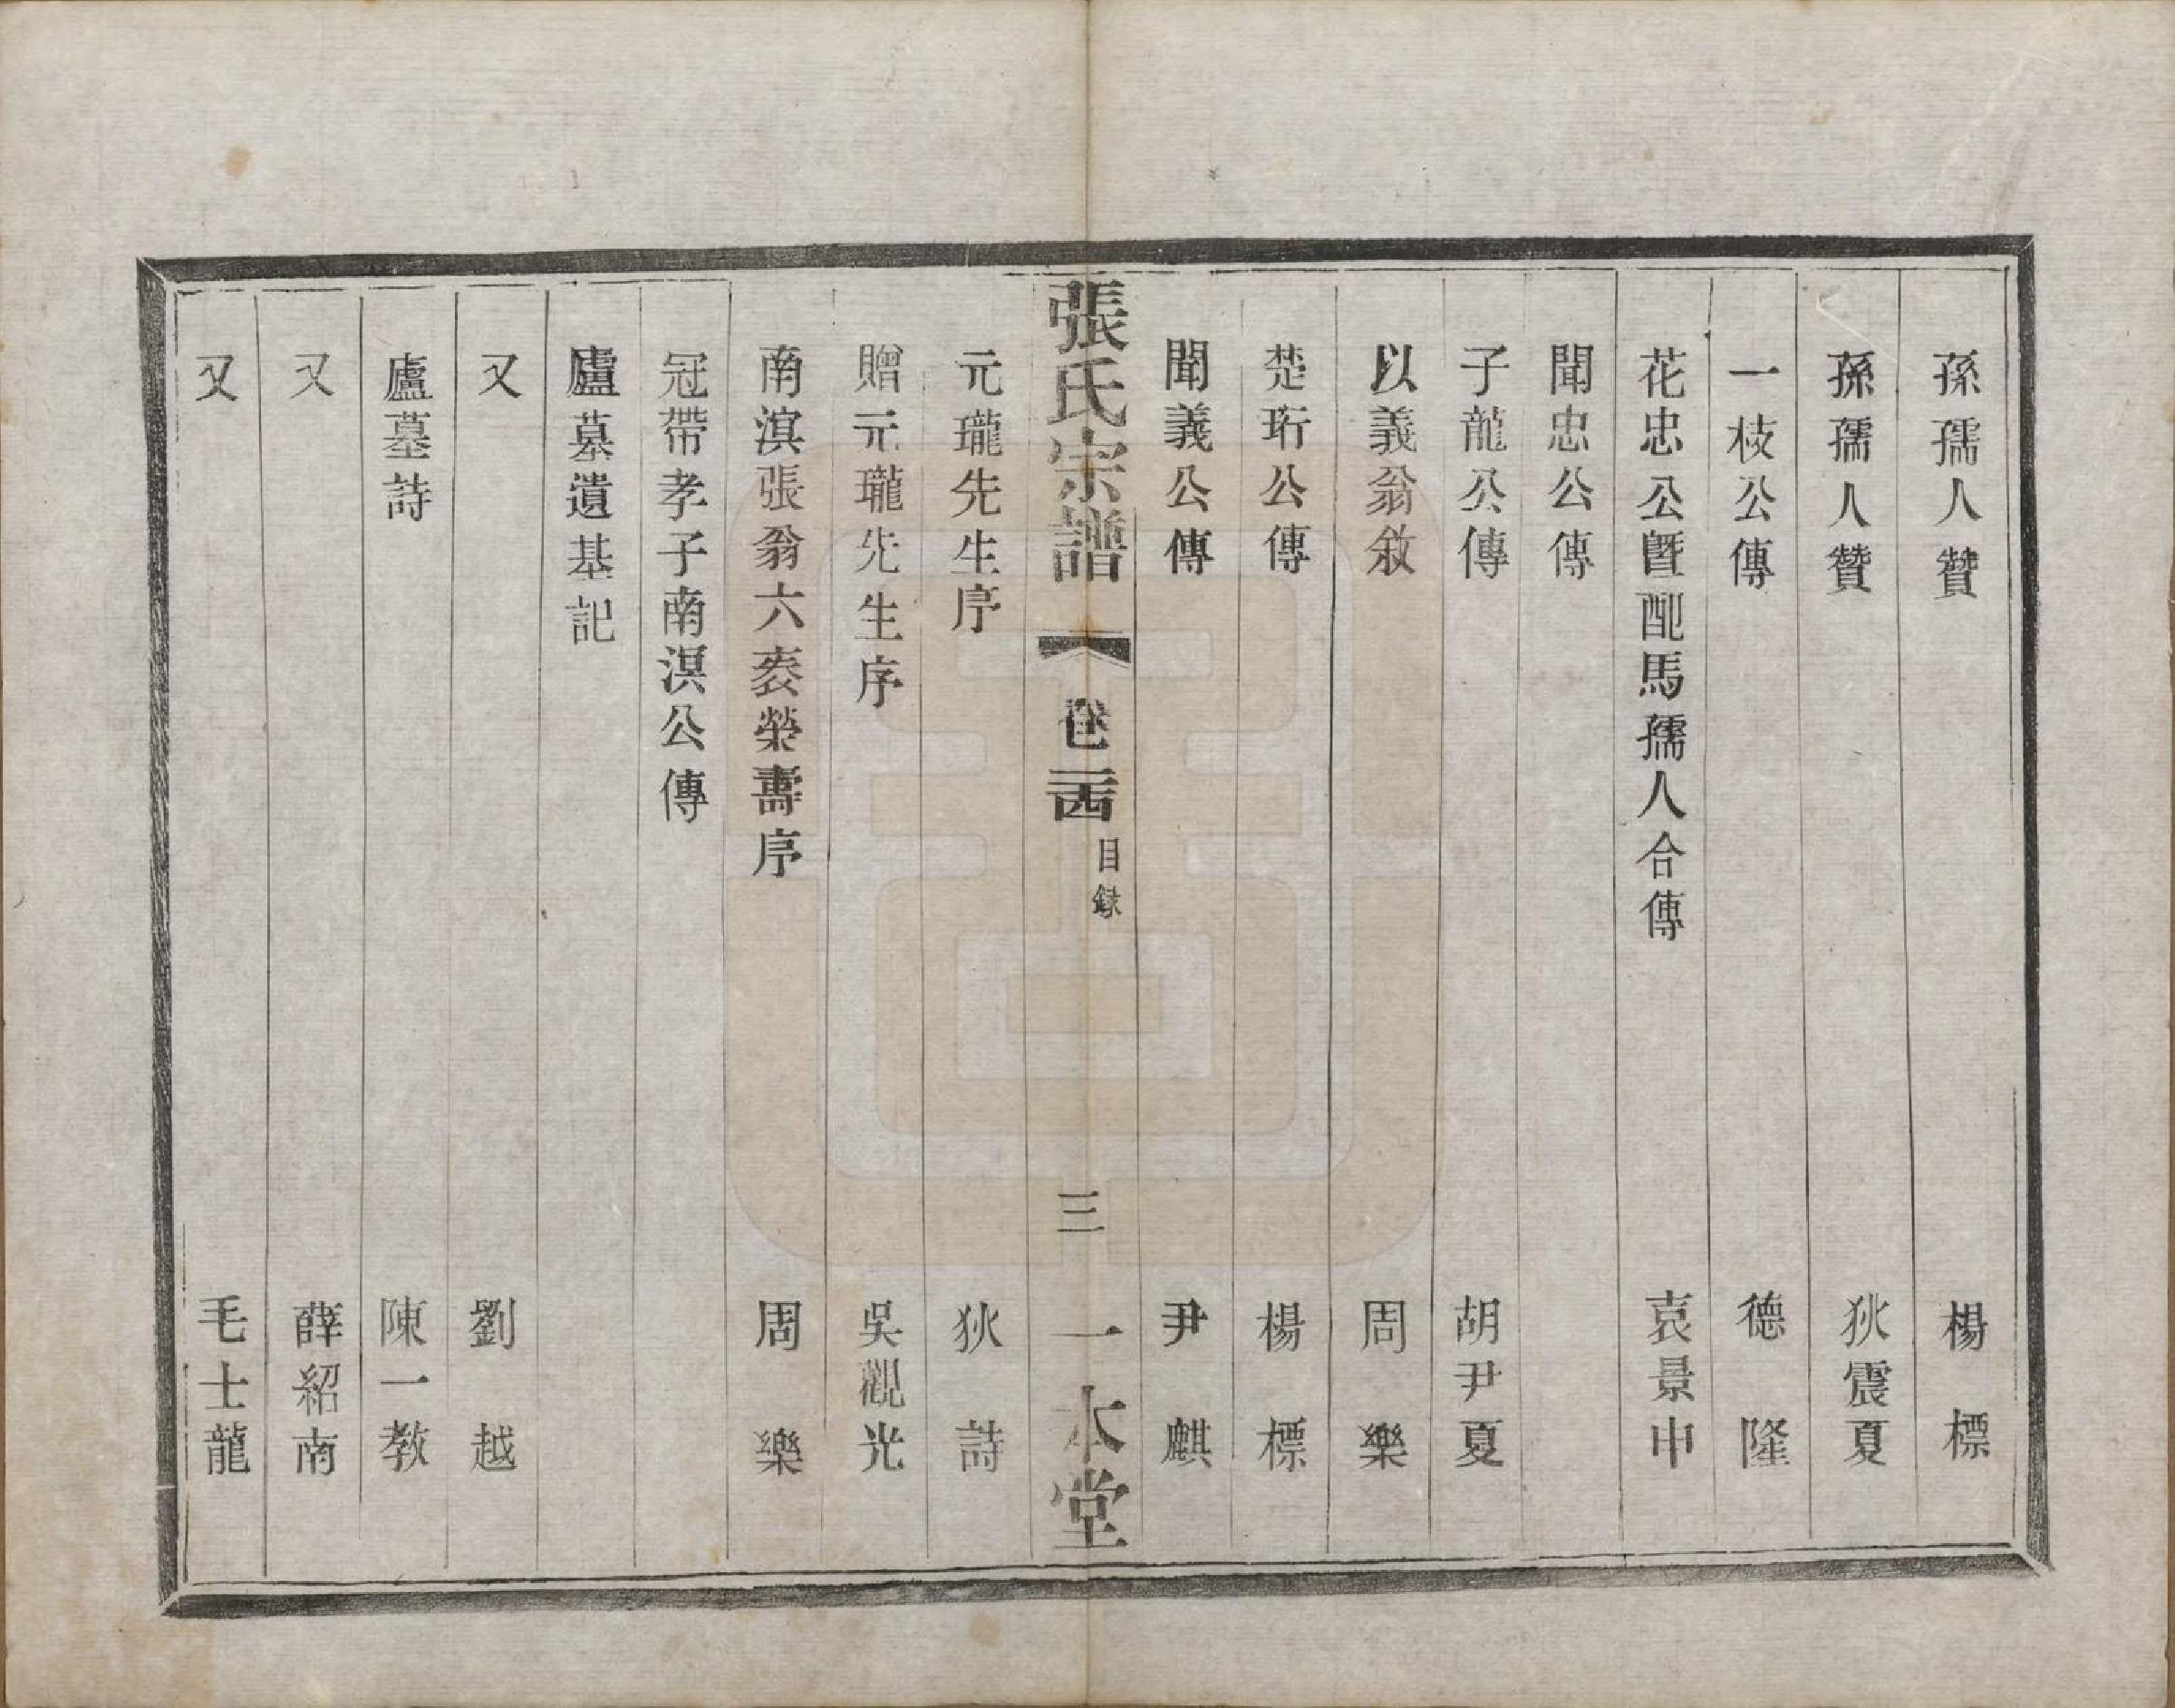 孫孺人贊 楊標
孫孺人贊 狄震夏
一枝公傳 德隆
花忠公曁配馬孺人合傳 袁景申
聞忠公傳
子龍公傳 胡尹夏
以義翁敘 周樂
楚珩公傳 楊標
聞義公傳 尹麒
張氏宗譜 卷二十四 目録 三 一本堂
元瓏先生序 狄詩
贈元瓏先生序 吳觀光
南溟張翁六袠榮壽序 周樂
冠帶孝子南溟公傳
廬墓遺基記
又 劉越
廬墓詩 陳一教
又 薛紹南
又 毛士龍